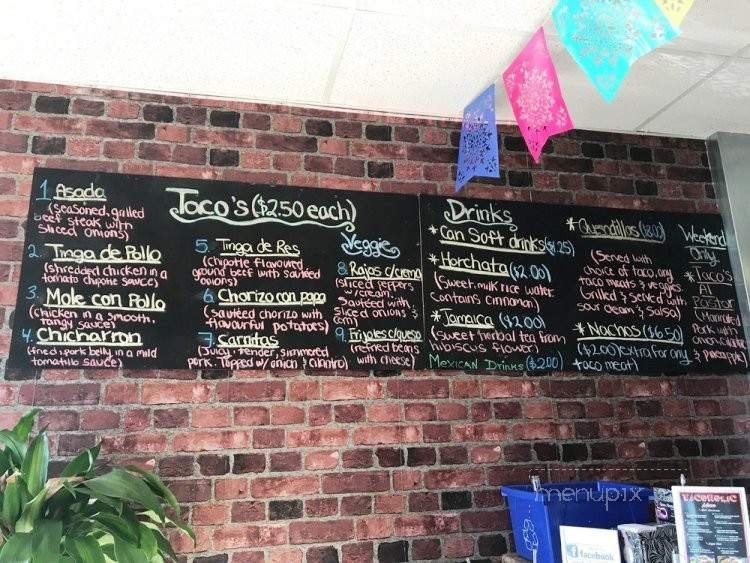 Taco's ($2.50 each)
1. Asada
(seasoned, grilled
beef steak with
sliced onions)
2. Tinga de Pollo
(shredded chicken in a
tomato chipotle sauce)
3. Mole con Pollo
(chicken in a smooth,
tangy sauce)
4. Chicharron
(fried pork belly in a mild
tomatillo sauce)
5. Tinga de Res
(chipotle flavoured
ground beef with sautéed
onions)
6. Chorizo con papa
(sautéed chorizo with
flavourful potatoes)
7. Carnitas
(Juicy, tender, simmered
pork. Topped w/ onion & cilantro)
Veggie
8. Rajas c/crema
(sliced peppers
w/cream.
Sautéed with
sliced onions &
corn)
9. Frijoles c/queso
(refined beans
with cheese)
Drinks
* Can Soft drinks ($1.25)
* Horchata ($2.00)
(Sweet milk rice water
contains cinnamon)
* Jamaica ($2.00)
(sweet herbal tea from
hibiscus flower)
Mexican Drinks ($2.00)
* Quesadillas
(Served with
choice of taco, any
taco meats & veggies.
Grilled & served with
sour cream & salsa)
* Nachos ($6.50)
($2.00) extra for any
taco meat)
Weekend
Only
* Taco's
Al
Pastor
(Marinated
Pork with
onion, cilantro
& pineapple)
menupix
facebook
TACOHOLIC